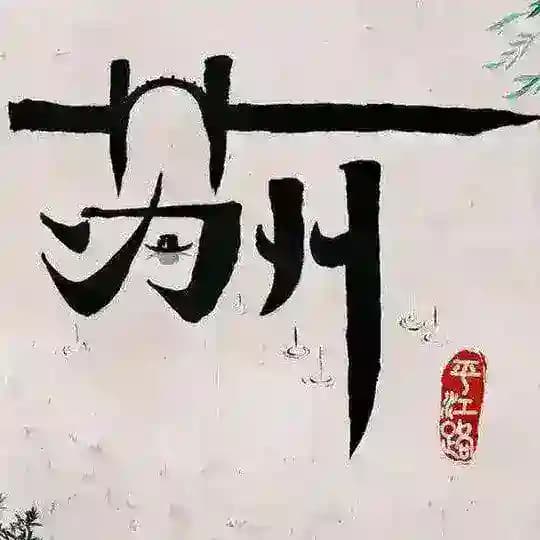 苏州
平江路